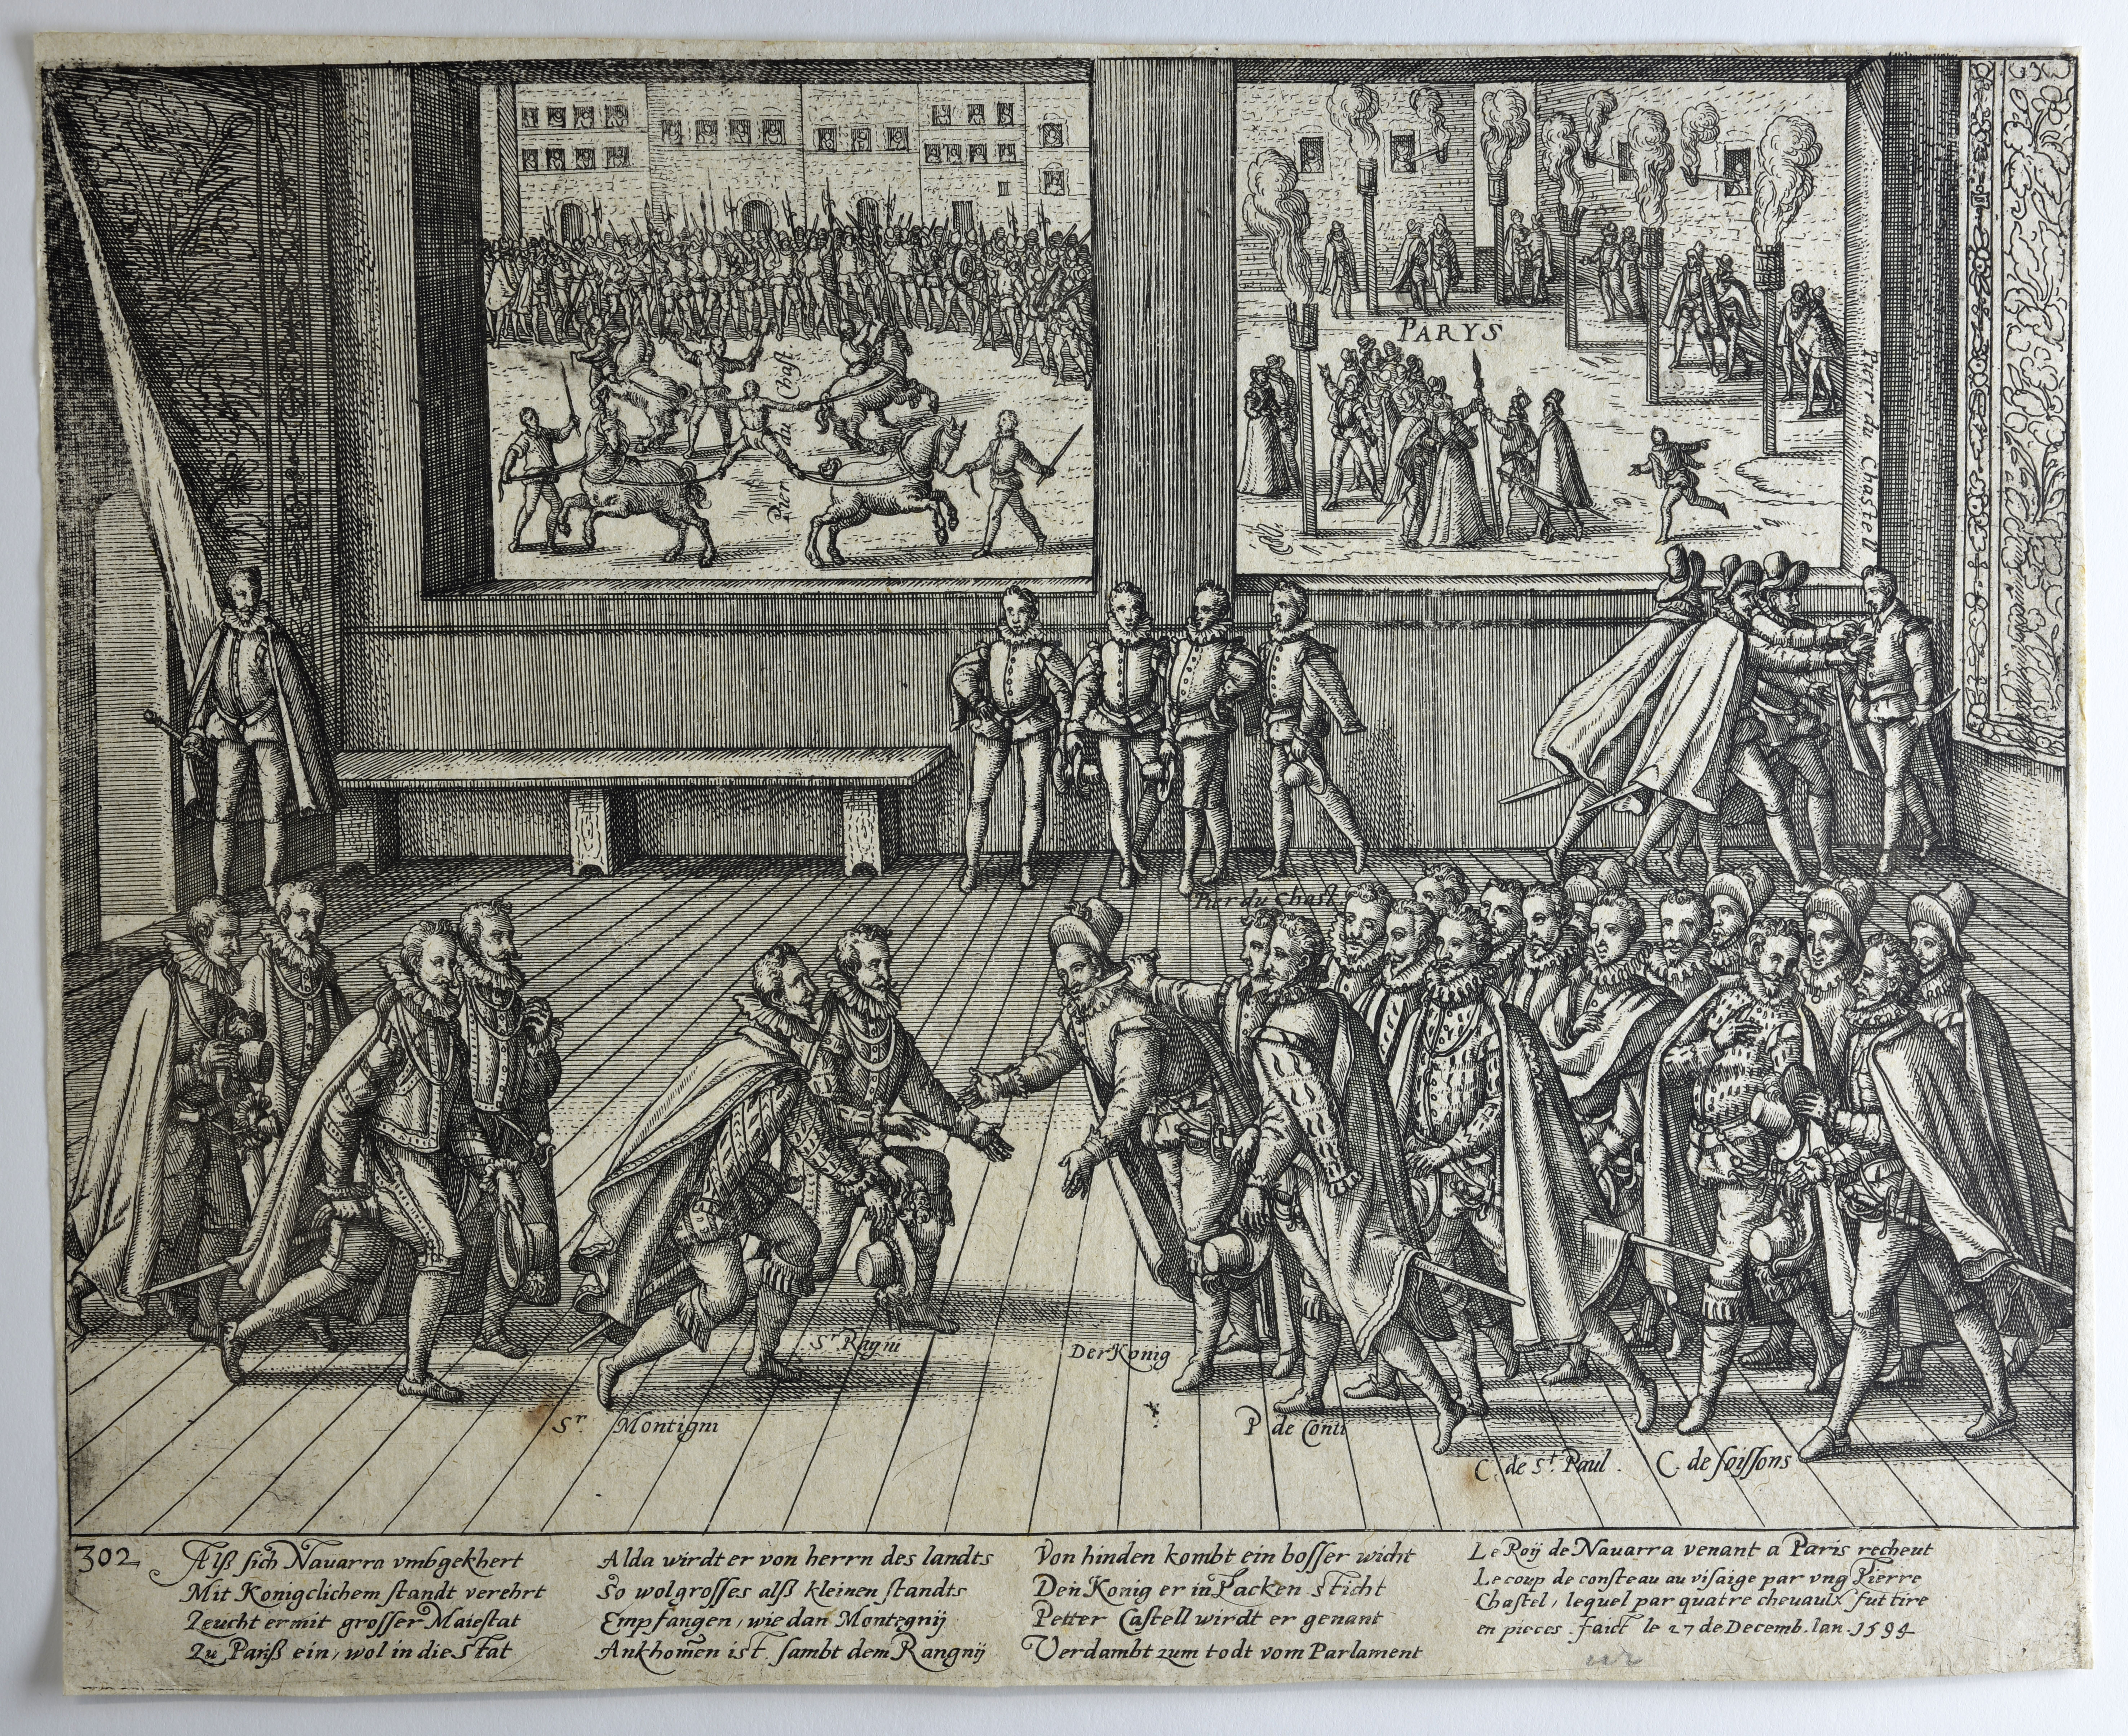 PARYS
Pier du Chast
Pierr du Chastell
Pier du Chast.
Sr Ragni
Der Konig
Sr. Montigni
P de Conti
C. de St. Paul.
C. de soissons
302
Alß sich Nauarra vmbgekhert
Mit Konigclichem standt verehrt
Zeucht er mit grosser Maiestat
Zu Pariß ein, wol in die Stat
Alda wirdt er von herrn des landts
So wol grosses alß kleinen standts
Empfangen, wie dan Montegnij
Ankhomen ist. sambt dem Rangnij
Von hinden kombt ein bosser wicht
Den Konig er in Packen sticht
Petter Castell wirdt er genant
Verdambt zum todt vom Parlament
Le Roÿ de Nauarra venant a Paris recheut
Le coup de consteau au visaige par vng Pierre
Chastel, lequel par quatre cheuaulx fut tire
en pieces. faict le 27 de Decemb. lan. 1594